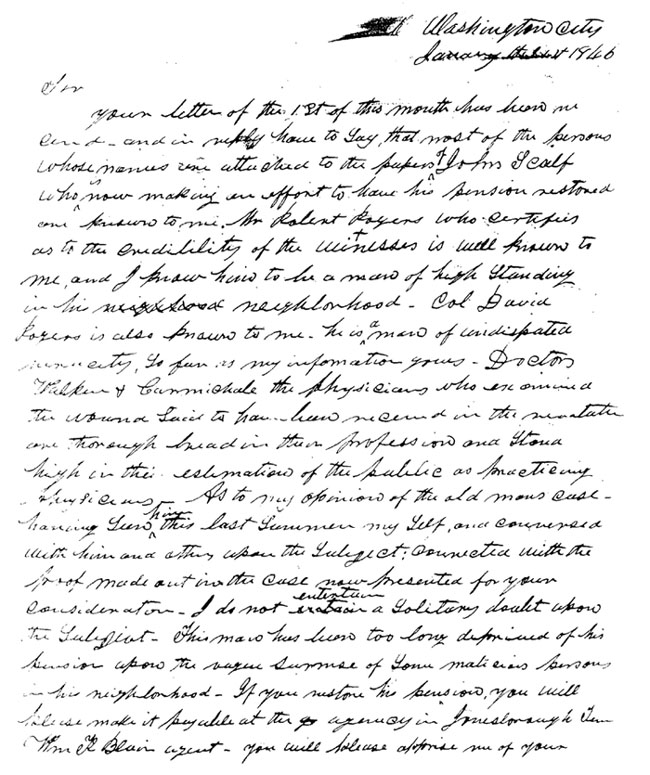 Washington City
January 1846
Sir
your letter of the 1st of this month has been re
ceivd - and in reply have to Say, that most of the persons
whose names are attached to the papers of John Scalf
who is now making an effort to have his pension restored
are known to me. Mr Robert Rogers who certifies
as to the credibility of the witnesses is well known to
me, and I know him to be a man of high Standing
in his neighborhood - Col David
Rogers is also known to me - he is a man of undisputed
veracity, So far as my infomation goes - Doctors
Walker & Carmichale the physicians who examined
the wound Said to have been received in the
are thorough bread in their profession and Stand
high in the estimation of the public as practicing
physicians - As to my opinion of the old mans case -
having Seen him this last Summer my Self, and conversed
with him and others upon the Subject; connected with the
proof made out in the case now presented for your
consideration - I do not entertain a Solitary doubt upon
the Subject - This man has been too long deprived of his
pension upon the vague Surmise of Some malicious persons
in his neighborhood - If you restore his pension, you will
please make it payable at the agency in Jonesborough Ten
Wm K Blair agent - you will please apprise me of your